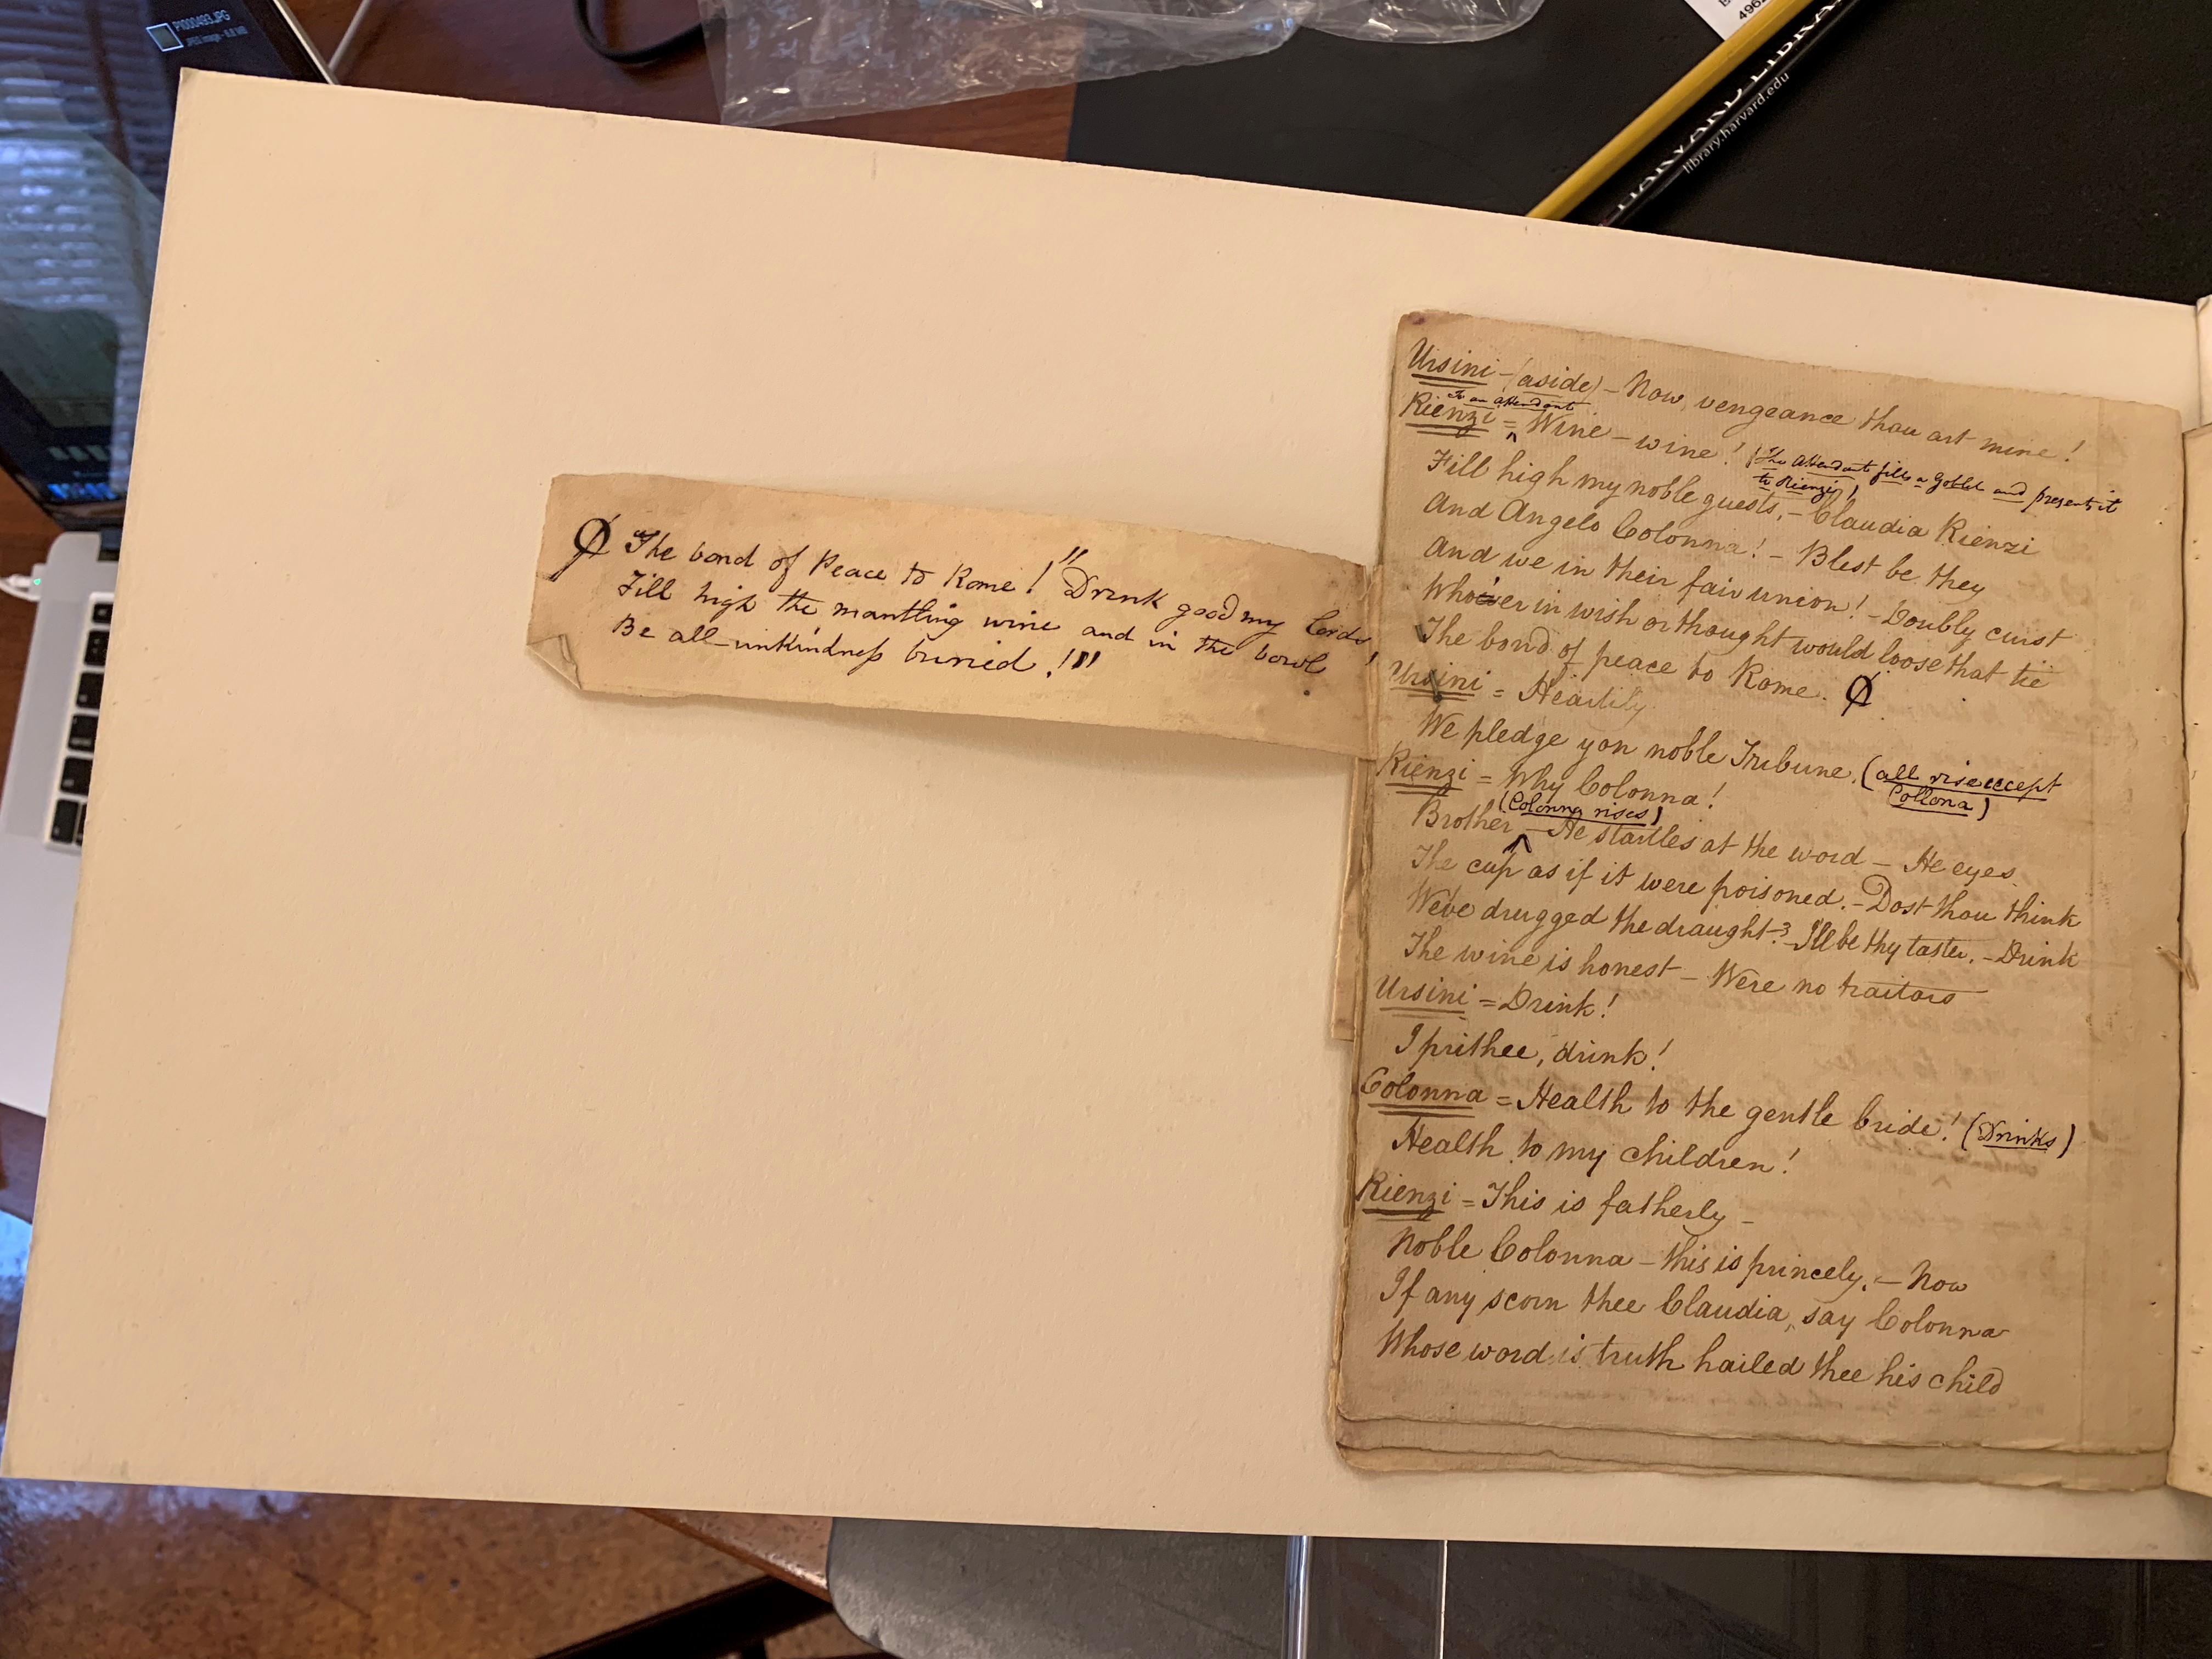 P1000493.JPG
JPEG image - 8.8 MB
4962
HARVARD LIBRA
library.harvard.edu
Ø The bond of Peace to Rome! "Drink good my lords,
Fill high the mantling wine and in the bowl
Be all unkindness buried!!"
Ursini - (aside) - Now, vengeance thou art mine!
To an attendant
Rienzi = ^ Wine - wine! (The Attendant fills a Goblet and presents it
to Rienzi)
Fill high my noble guests, - Claudia Rienzi
And Angelo Colonna! - Blest be they
And we in their fair union! - Doubly curst
Who'er in wish or thought would loose that tie
The bond of peace to Rome. Ø
Ursini = Heartily
We pledge you noble Tribune. (all rise except
Collona)
Rienzi = Why Colonna!
(Colonna rises)
Brother ^ - He startles at the word - He eyes
The cup as if it were poisoned. - Dost thou think
Weve drugged the draught? I'll be thy taster. - Drink
The wine is honest - Were no traitors
Ursini = Drink!
I prithee, drink!
Colonna = Health to the gentle bride! (Drinks)
Health to my children!
Rienzi = This is fatherly -
Noble Colonna - this is princely. - Now
If any scorn thee Claudia, say Colonna
Whose word is truth hailed thee his child